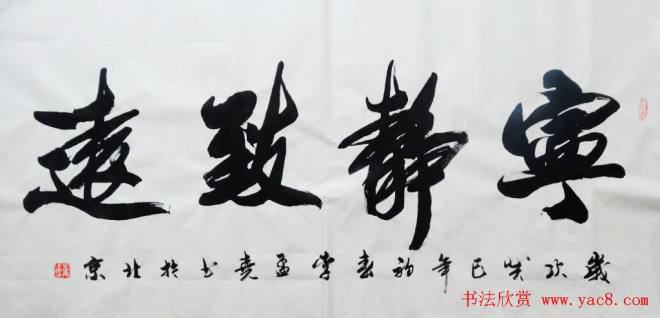 寧靜致遠
歲次癸巳年初春李孟尧书於北京
书法欣赏
www.yac8.com